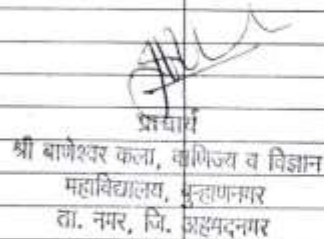 प्राचार्य
श्री बाणेश्वर कला, वाणिज्य व विज्ञान
महाविद्यालय, बुऱ्हाणनगर
ता. नगर, जि. अहमदनगर